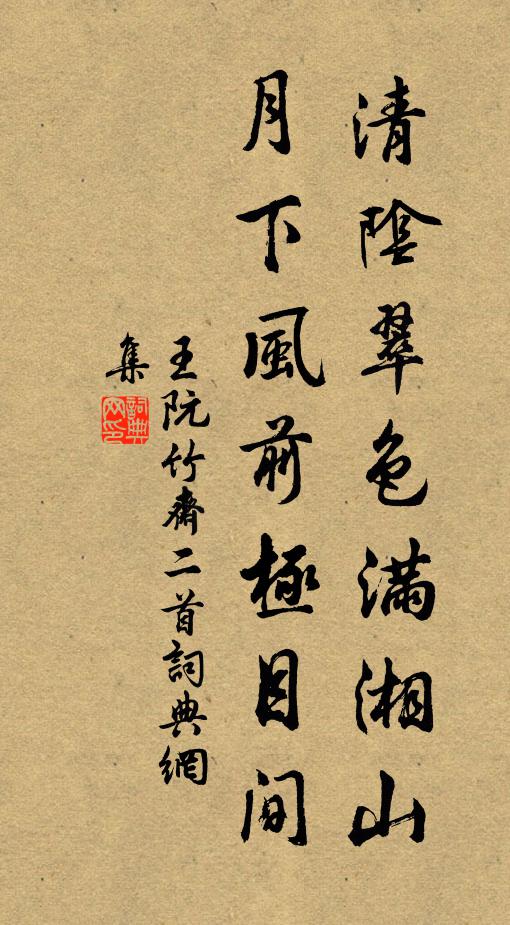 清陰翠色滿湘山
月下風前極目間
王阮竹齋二首詞典網
集
詞典網印